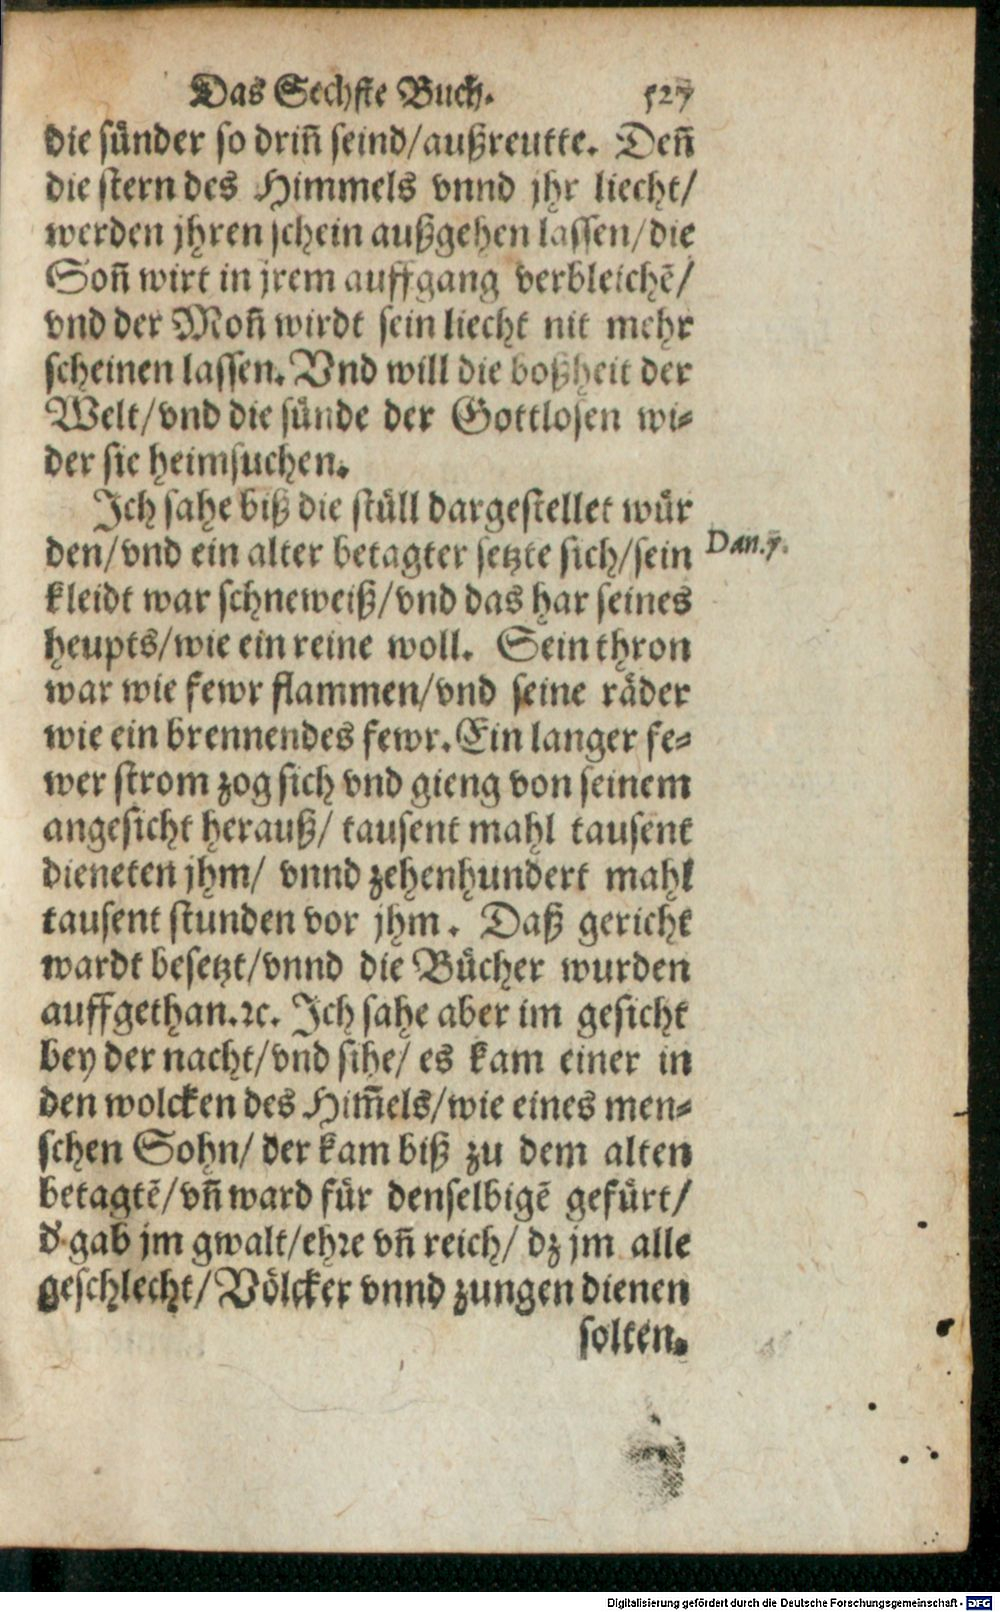 Das Sechste Buch. 527
die sünder so driñ seind/außreutte. Deñ
die stern des Himmels vnnd jhr liecht/
werden jhren schein außgehen lassen/die
Soñ wirt in jrem auffgang verbleichẽ/
vnd der Moñ wirdt sein liecht nit mehr
scheinen lassen. Vnd will die boßheit der
Welt/vnd die sünde der Gottlosen wi-
der sie heimsuchen.
Ich sahe biß die stüll dargestellet wür
den/vnd ein alter betagter setzte sich/sein
Dan.7.
kleidt war schneweiß/vnd das har seines
heupts/wie ein reine woll. Sein thron
war wie fewr flammen/vnd seine räder
wie ein brennendes fewr. Ein langer fe-
wer strom zog sich vnd gieng von seinem
angesicht herauß/ tausent mahl tausent
dieneten jhm/ vnnd zehenhundert mahl
tausent stunden vor jhm. Daß gericht
wardt besetzt/vnnd die Bücher wurden
auffgethan.ꝛc. Ich sahe aber im gesicht
bey der nacht/vnd sihe/ es kam einer in
den wolcken des Him̃els/wie eines men-
schen Sohn/ der kam biß zu dem alten
betagtẽ/vñ ward für denselbigẽ gefürt/
d' gab jm gwalt/ehre vñ reich/ dz jm alle
geschlecht/Völcker vnnd zungen dienen
solten.
Digitalisierung gefördert durch die Deutsche Forschungsgemeinschaft - DFG